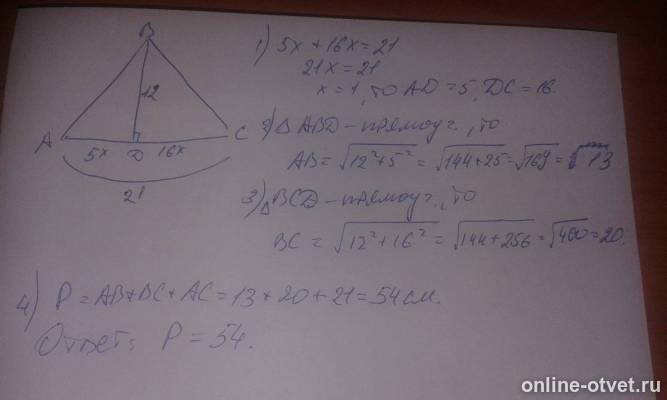 B
12
A 5x D 16x C
21
1) 5x + 16x = 21
21x = 21
x = 1, то AD = 5, DC = 16.
2) △ ABD - прямоуг., то
AB = √12² + 5² = √144 + 25 = √169 = 13
3) △ BCD - прямоуг., то
BC = √12² + 16² = √144 + 256 = √400 = 20.
4) P = AB + BC + AC = 13 + 20 + 21 = 54 см.
Ответ: P = 54.
online-otvet.ru